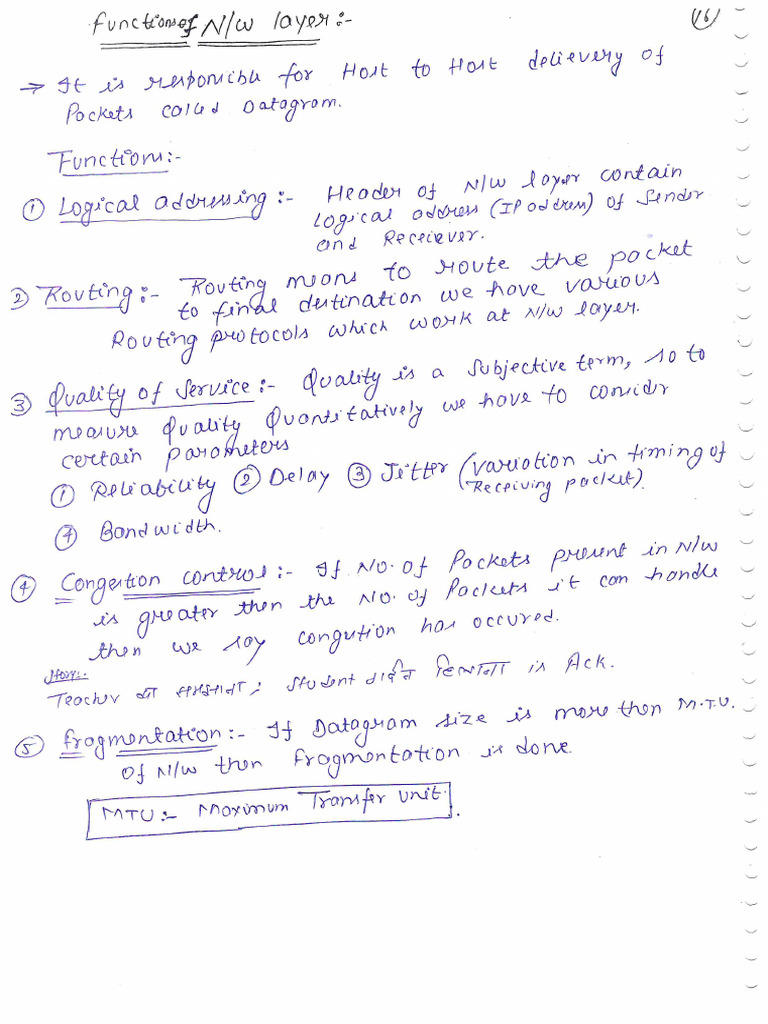 Functions of N/W layer:-
16
→ It is responsible for Host to Host delievery of
Packets called Datagram.
Functions:-
① Logical addressing :- Header of N/W layer contain
Logical address (IP address) of Sender
and Receiever.
② Routing :- Routing means to route the packet
to final destination we have various
Routing protocols which work at N/W layer.
③ Quality of Service :- Quality is a subjective term, so to
measure Quality Quantitatively we have to consider
certain parameters
① Reliability ② Delay ③ Jitter (variation in timing of
Receiving packet).
④ Bandwidth.
④ Congestion control :- If No. of Packets present in N/W
is greater then the No. of Packets it can handle
then we say congution has occured.
Teacher का समझाना ; student गर्दन हिलाना is Ack.
⑤ fragmentation :- If Datagram size is more then M.T.U.
of N/W then fragmentation is done.
MTU :- Maximum Transfer unit.